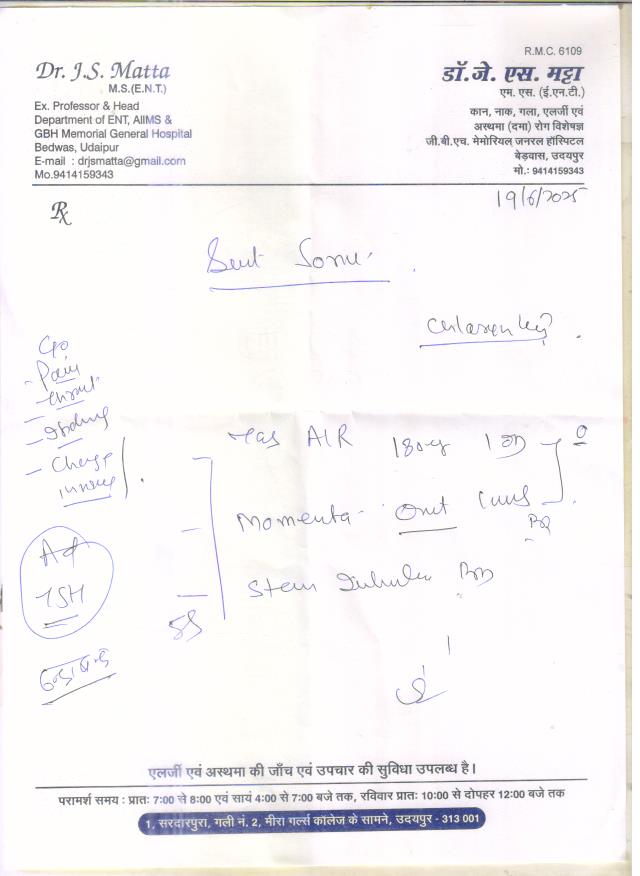 R.M.C. 6109
Dr. J.S. Matta
M.S.(E.N.T.)
Ex. Professor & Head
Department of ENT, AIIMS &
GBH Memorial General Hospital
Bedwas, Udaipur
E-mail : drjsmatta@gmail.com
Mo.9414159343
डॉ.जे. एस. मट्टा
एम. एस. (ई.एन.टी.)
कान, नाक, गला, एलर्जी एवं
अस्थमा (दमा) रोग विशेषज्ञ
जी.बी.एच. मेमोरियल जनरल हॉस्पिटल
बेड़वास, उदयपुर
मो.: 9414159343
19/6/2025
Rx
C/o
- Pain
- throat
- Change
AIR 180mg 1 OD
Momenta
Steam BD
TSH
एलर्जी एवं अस्थमा की जाँच एवं उपचार की सुविधा उपलब्ध है।
परामर्श समय : प्रातः 7:00 से 8:00 एवं सायं 4:00 से 7:00 बजे तक, रविवार प्रातः 10:00 से दोपहर 12:00 बजे तक
1, सरदारपुरा, गली नं. 2, मीरा गर्ल्स कॉलेज के सामने, उदयपुर - 313 001